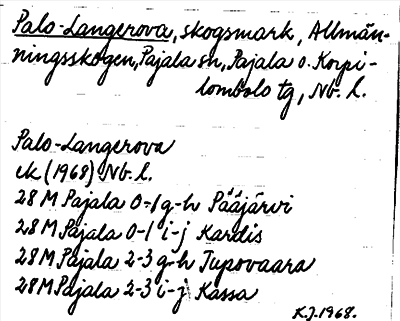 Palo-Langerova, skogsmark, Allmän-
ningsskogen, Pajala sn, Pajala o. Korpi-
lombolo tg, Nb. l.
Palo-Langerova
ek (1968) Nb. l.
28 M Pajala 0-1 g-h Pääjärvi
28 M Pajala 0-1 i-j Kardis
28 M Pajala 2-3 g-h Jupovaara
28 M Pajala 2-3 i-j Kassa
K.J. 1968.